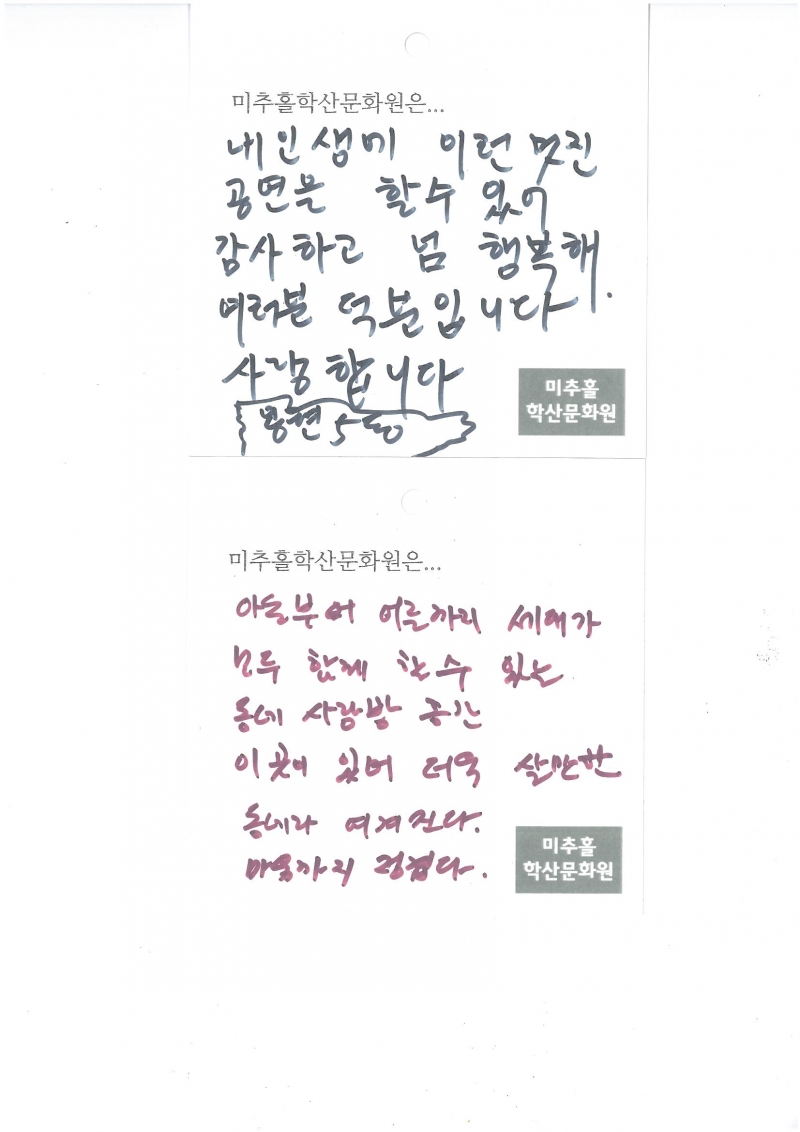 미추홀학산문화원은...
내 인생에 이런 멋진
공연을 할수 있어
감사하고 넘 행복해
여러분 덕분입니다.
사랑합니다
용현5동
미추홀
학산문화원
미추홀학산문화원은...
아동부터 어른까지 세대가
모두 함께 할 수 있는
동네 사랑방 공간
이 곳이 있어 더욱 살만한
동네라 여겨진다.
마음까지 정겹다.
미추홀
학산문화원